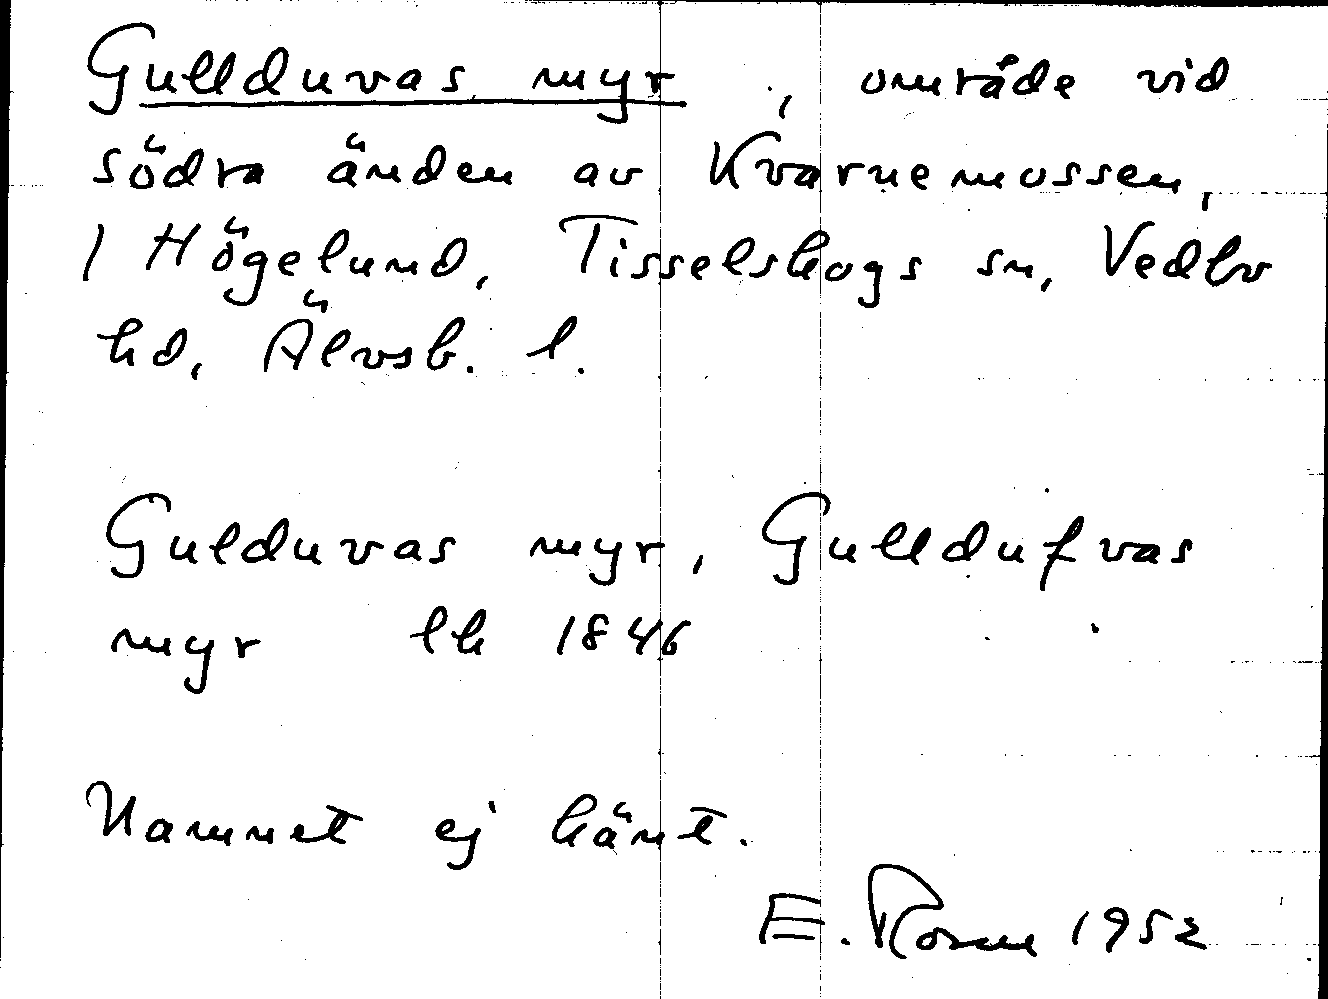 Gullduvas myr, område vid
södra änden av Kvarnemossen,
1 Högelund, Tisselskogs sn, Vedbo
hd, Älvsb. l.
Gulduvas myr, Gulldufvas
myr lk 1846
Namnet ej känt.
E. Rosen 1952